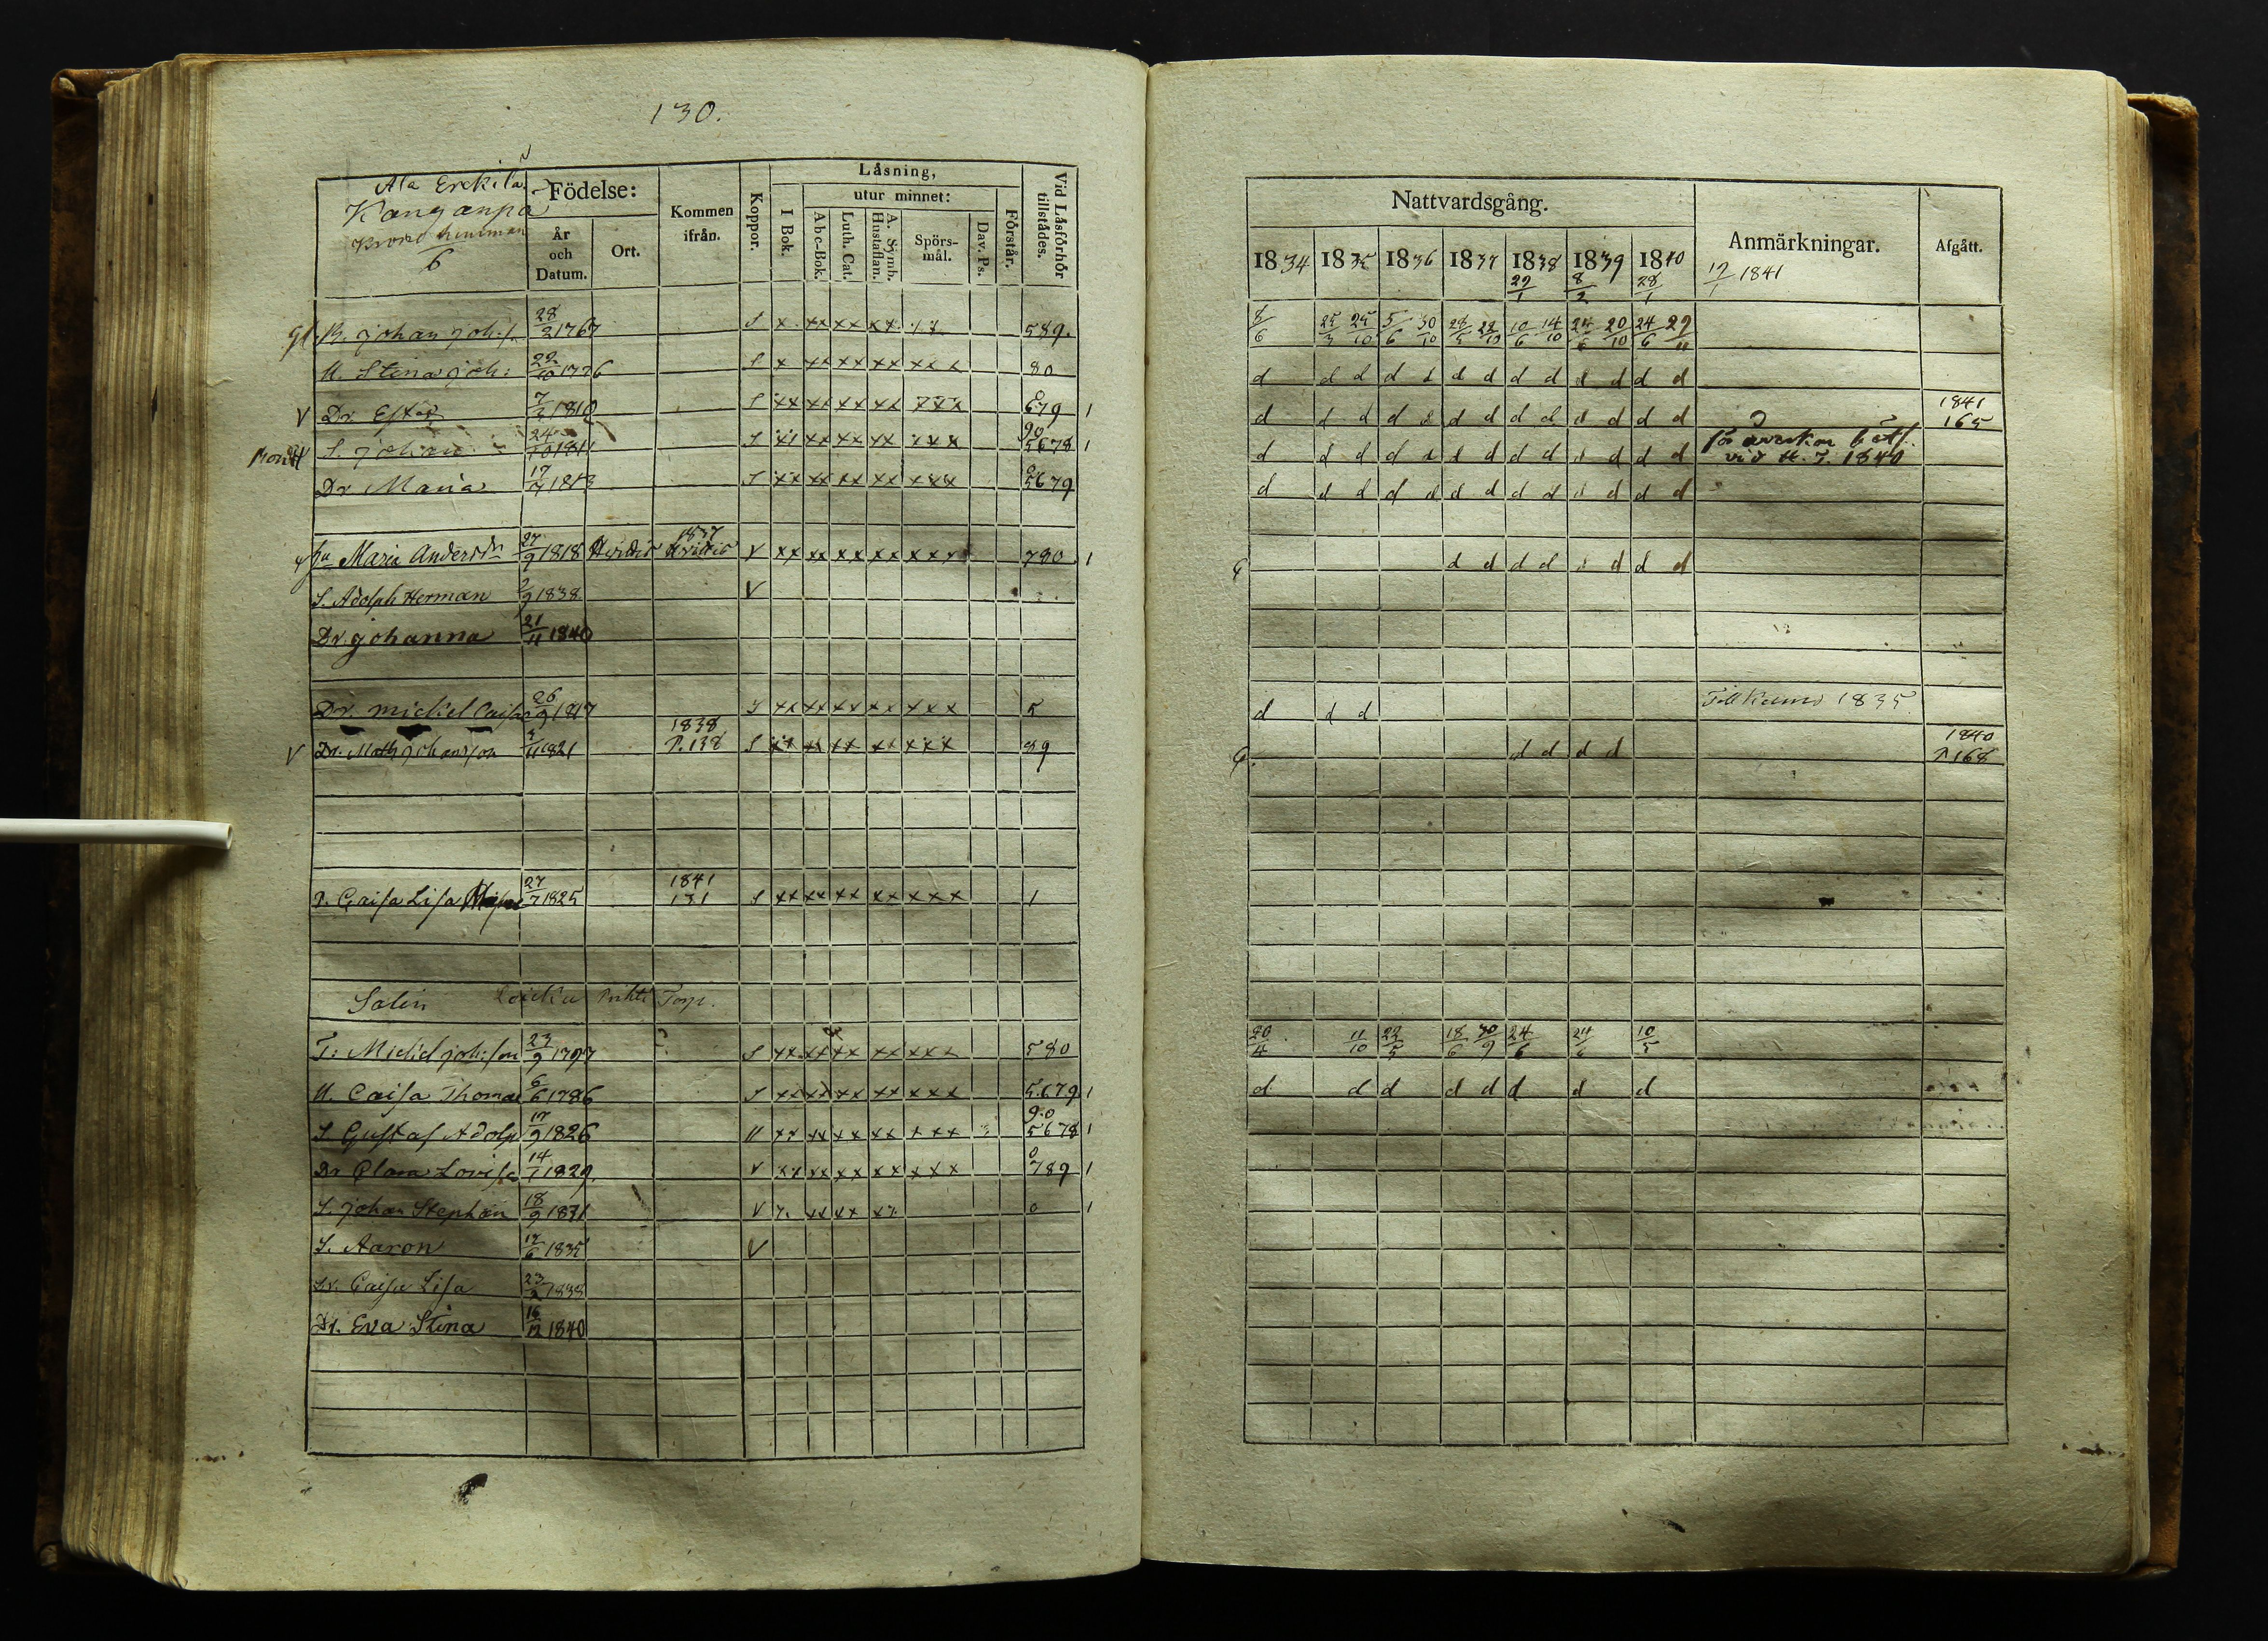 130.
Ala Erckilä
Kanganpä
Krono hemman
6
Födelse:
År och Datum.
Ort.
Kommen ifrån.
Koppor.
Läsning,
I Bok.
utur minnet:
Abc-Bok.
Luth. Cat.
A. Symb. Hustaflan.
Spörs-mål.
Dav. Ps.
Förstår.
Vid Läsförhör tillstädes.
B. Johan Joh:s. 28/2 1767 S x xx xx xx 589.
H. Stina Joh: 22/10 1776 S x xx xx xx xxx 80
V Dr. Est 7/3 1810 S xx xx xx xx xxx 679 1
S. Johan 24/10 1811 S xx xx xx xx xxx 90 5678 1
Dr Maria 17/7 1813 S xx xx xx xx xxx 5679
hu Maria Andersdr 27/9 1818 1837 V xx xx xx xx xxx 780. 1
S. Adolph Herman 2/9 1838 V
Dr. Johanna 21/11 1840
Dr. Mickel Caisa 26/9 1817 S xx xx xx xx xxx 5
V Dr. Math Johansson 5/11 1821 1838 P. 138 S xx xx xx xx xxx 89
P. Caisa Lisa 27/7 1825 1841 131 S xx xx xx xx xxx 1
Salin Torp.
T: Mickel Joh:son 23/9 1797 S xx xx xx xx xxx 580
H. Caisa Thomae 6/6 1786 S xx xx xx xx xxx 5.6.7.9. 1
S. Gustaf Adolp 17/9 1826 V xx xx xx xx xxx 9.0 5678 1
Dr Clara Lovisa 14/1 1829. V xx xx xx xx xxx 0 789 1
S. Johan Stephan 18/9 1831 V x. xx xx xx 0 1
S. Aaron 17/6 1835 V
Dr. Caisa Lisa 23/2 1838
Dr. Eva Stina 16/12 1840
Nattvardsgång.
Anmärkningar.
Afgått.
1834 1835 1836 1837 1838 1839 1840
29/1 8/2 28/1 12/1 1841
8/6 25/3 25/10 5/6 30/10 28/5 22/10 10/6 14/10 24/6 20/10 24/6 29/11
d d d d d d d d d d d d d
d d d d d d d d d d d d d 1841 165
d d d d d d d d d d d d d för averkan
vid H. T. 1840
d d d d d d d d d d d d d
d d d d d d d d
d d d Till Kumo 1835
d d d d 1840 P 168
20/4 11/10 22/5 18/6 30/9 24/6 24/6 10/5
d d d d d d d d